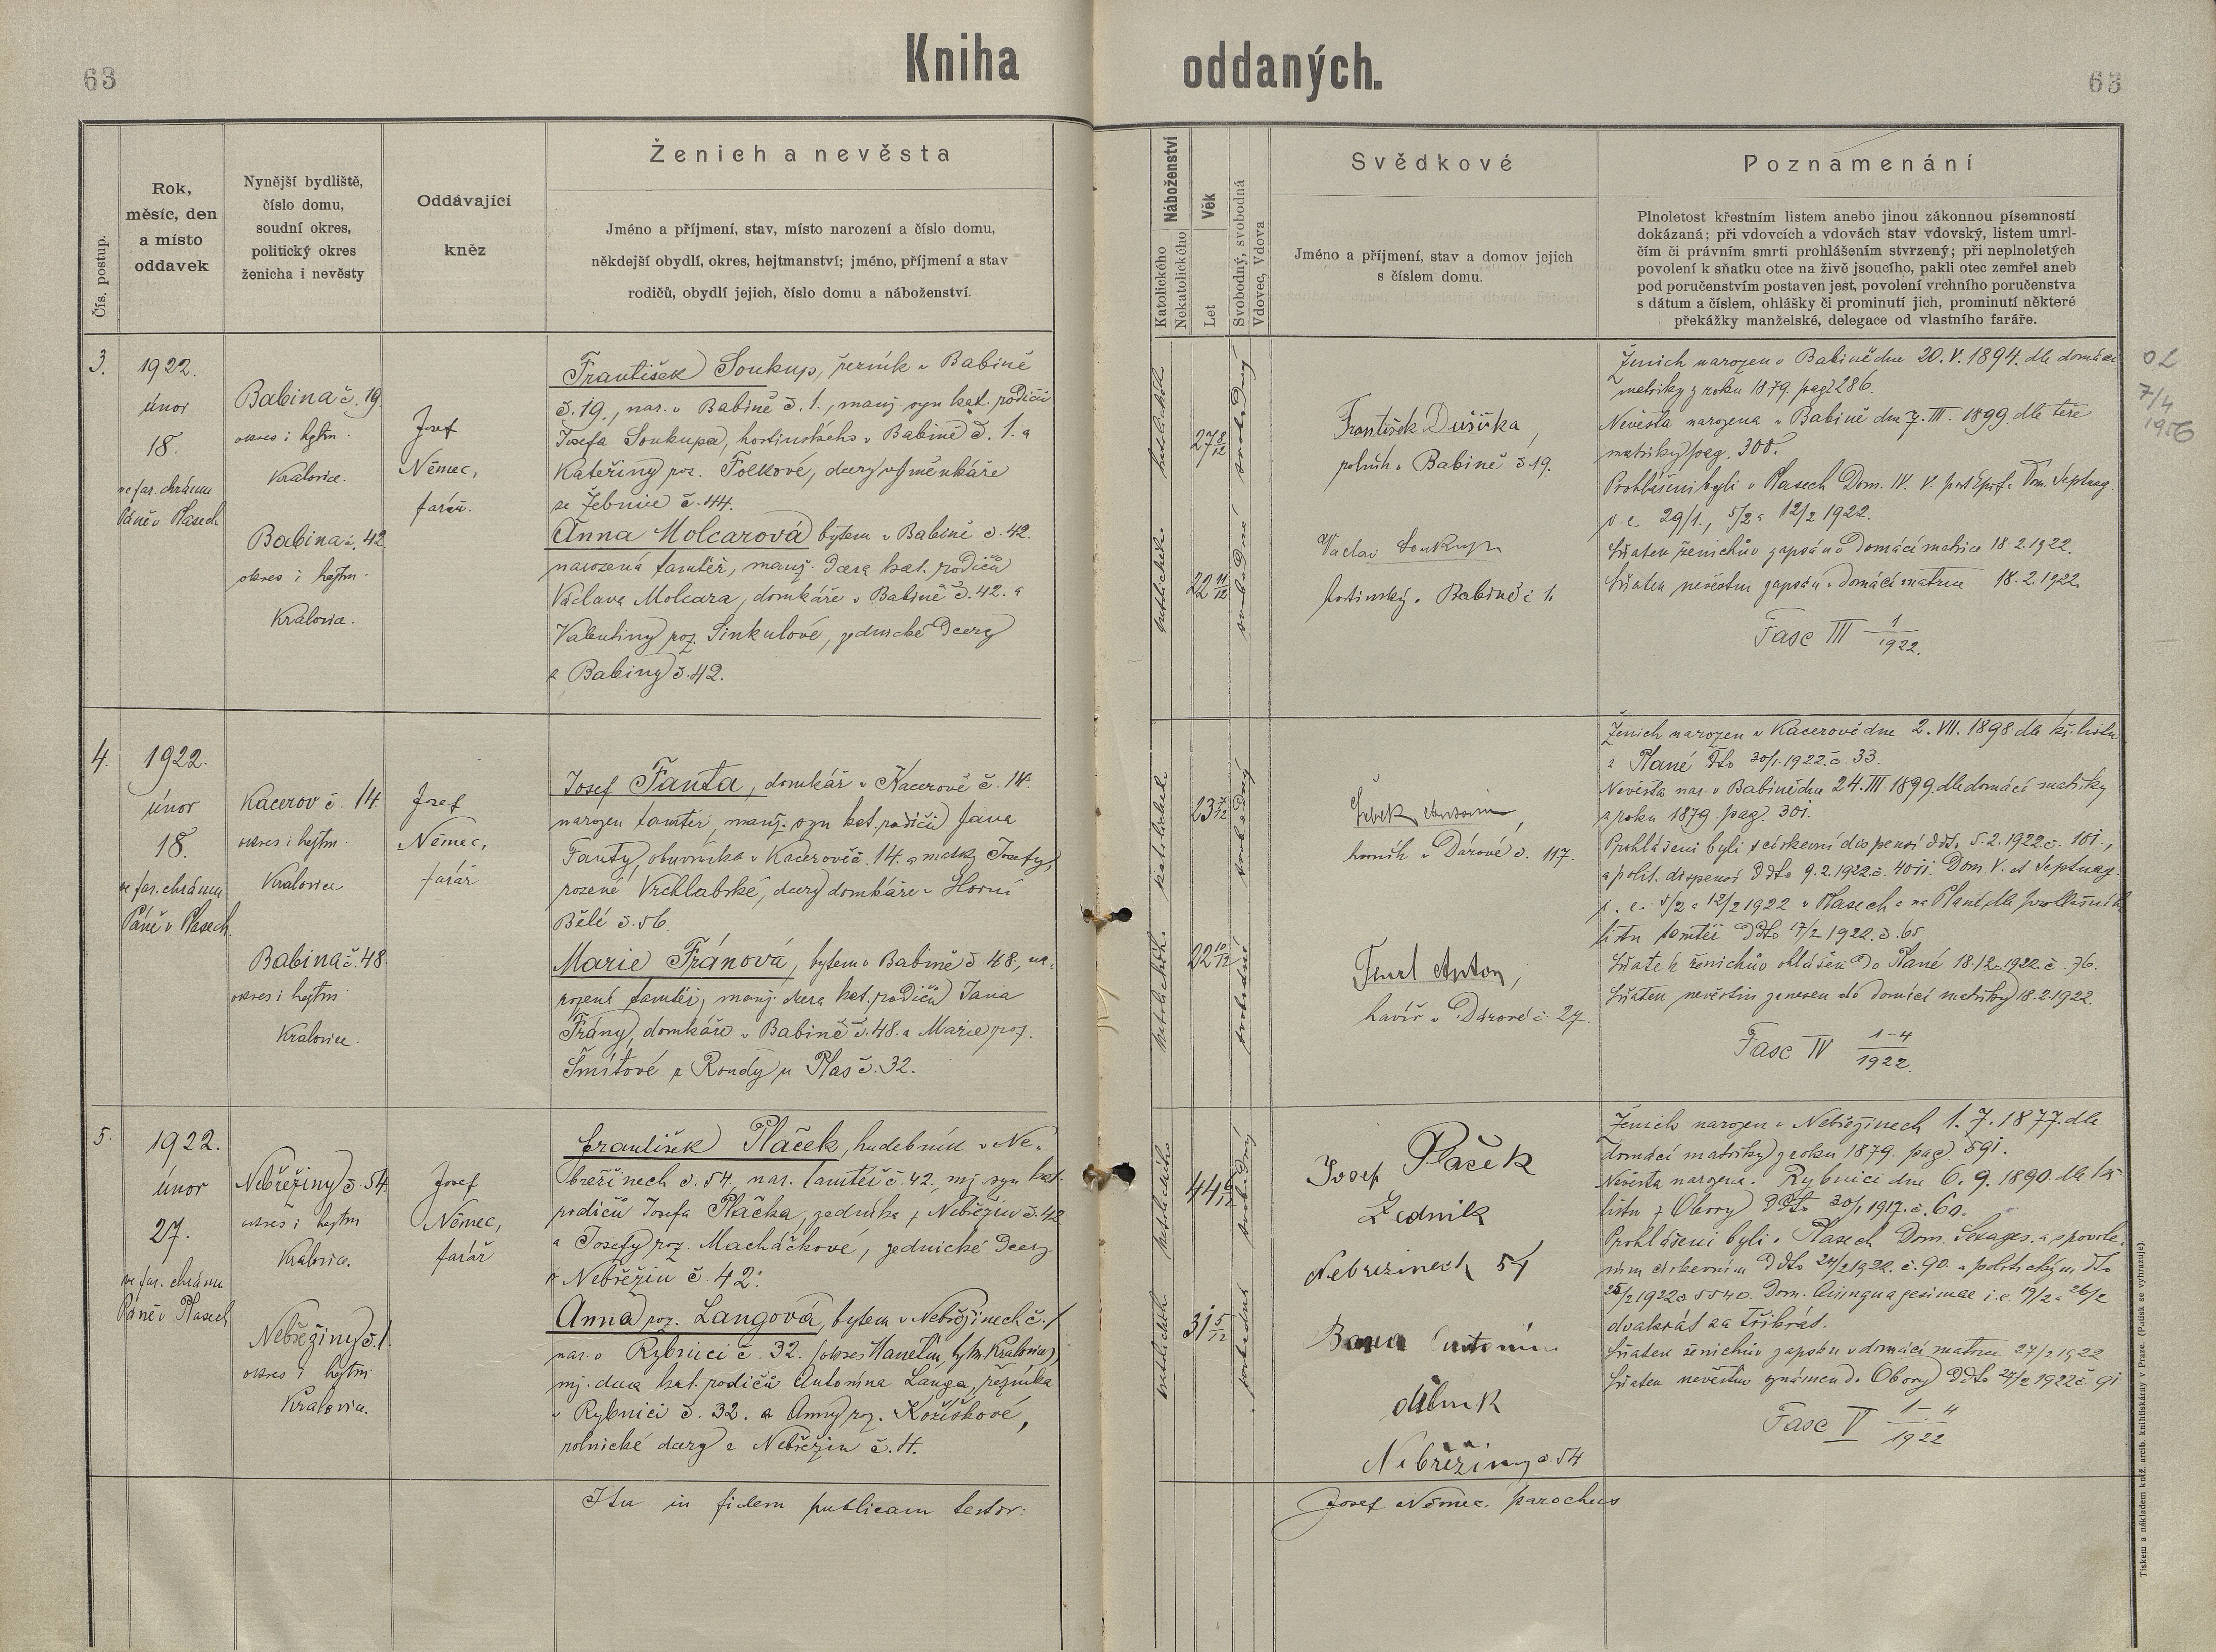 63
Kniha
oddaných.
63
Čís. postup.
Rok,
měsíc, den
a místo
oddavek
Nynější bydliště,
číslo domu,
soudní okres,
politický okres
ženicha i nevěsty
Oddávající
kněz
Ženich a nevěsta
Jméno a příjmení, stav, místo narození a číslo domu,
někdejší obydlí, okres, hejtmanství; jméno, příjmení a stav
rodičů, obydlí jejich, číslo domu a náboženství.
Náboženství
Katolického
Nekatolického
Věk
Let
Svobodný, svobodná
Vdovec, Vdova
Svědkové
Jméno a příjmení, stav a domov jejich
s číslem domu.
Poznamenání
Plnoletost křestním listem anebo jinou zákonnou písemností
dokázaná; při vdovcích a vdovách stav vdovský, listem umrl-
čím či právním smrti prohlášením stvrzený; při neplnoletých
povolení k sňatku otce na živě jsoucího, pakli otec zemřel aneb
pod poručenstvím postaven jest, povolení vrchního poručenstva
s dátum a číslem, ohlášky či prominutí jich, prominutí některé
překážky manželské, delegace od vlastního faráře.
3.
1922.
únor
18.
ve far. chrámu
Páně v Plasech
Babina č. 19.
okres i hejtm.
Kralovice.
Babina č. 42.
okres i hejtm.
Kralovice.
Josef
Němec,
farář.
František Soukup, řezník v Babině
č. 19., nar. v Babině č. 1., manž. syn kat. rodičů
Josefa Soukupa, hostinského v Babině č. 1. a
Kateřiny roz. Folkové, dcery výměnkáře
ze Žebnice č. 44.
Anna Molcarová bytem v Babině č. 42.
narozená tamtéž, manž. dcera kat. rodičů
Václava Molcara, domkáře v Babině č. 42. a
Valentiny roz. Sinkulové, zednické dcery
z Babiny č. 42.
katolického
katolického
27 8/12
22 11/12
svobodný
svobodná
František Dušička,
rolník v Babině č. 19.
Václav Soukup
hostinský v Babině č 1.
Ženich narozen v Babině dne 20. V. 1894. dle domácí
matriky z roku 1879. pag. 286.
Nevěsta narozena v Babině dne 7. III. 1899. dle téže
matriky pag. 300.
Prohlášeni byli v Plasech Dom. IV. V. post Epif. a Dom. Septuag.
i. e. 29/1., 5/2 a 12/2 1922.
Sňatek ženichův zapsán v domácí matrice 18. 2. 1922.
Sňatek nevěstin zapsán v domácí matrice 18. 2. 1922.
Fasc III 1/1922.
OL
7/4
1956
4.
1922.
únor
18.
ve far. chrámu
Páně v Plasech
Kacerov č. 14.
okres i hejtm.
Kralovice
Babina č. 48.
okres i hejtm.
Kralovice.
Josef
Němec,
farář
Josef Fanta, domkář v Kacerově č. 14.
narozen tamtéž, manž. syn kat. rodičů Jana
Fanty, obuvníka v Kacerově č. 14. a matky Josefy,
rozené Vrchlabské, dcery domkáře v Horní
Bělé č. 56.
Marie Fránová, bytem v Babině č. 48, na-
rozená tamtéž, manž. dcera kat. rodičů Jana
Frány, domkáře v Babině č. 48. a Marie roz.
Šmítové z Rondy u Plas č. 32.
23 7/12
22 10/12
Šebek Antonín,
horník v Dárové č. 117.
Anton,
havíř v Dárové č. 27.
Ženich narozen v Kacerově dne 2. VII. 1898 dle kř. listu
z Plané dto 30/1. 1922. č. 33.
Nevěsta nar. v Babině dne 24. III. 1899. dle domácí matriky
z roku 1879. pag. 301.
Prohlášeni byli s církevní dispensí ddto. 5. 2. 1922. č. 101.,
a polit. dispensí ddto 9. 2. 1922. č. 4011. Dom. V. et Septuag.
i. e. 5/2 a 12/2 1922 v Plasech a na Plané, dle prohlašního
listu tamtéž ddto 17/2 1922. č. 65.
Sňatek ženichův ohlášen do Plané 18. 2. 1922. č. 76.
Sňatek nevěstin zanesen do domácí matriky 18. 2. 1922.
Fasc IV 1-4/1922.
5.
1922.
únor
27.
ve far. chrámu
Páně v Plasech
Nebřeziny č. 54.
okres i hejtm.
Kralovice.
Nebřeziny č. 1.
okres i hejtm.
Kralovice.
Josef
Němec,
farář
František Plaček, hudebník v Ne-
břežinech č. 54, nar. tamtéž č. 42., mj. syn kat.
rodičů Josefa Plačka, zedníka z Nebřezin č. 42
a Josefy roz. Macháčkové, zednické dcery
z Nebřezin č. 42.
Anna roz. Langová, bytem v Nebřezinech č. 1
nar. v Rybnici č. 32. (okres Manětín, hejtm. Kralovice),
mj. dcera kat. rodičů Antonína Langa, řezníka
v Rybnici č. 32. a Anny roz. Kožíškové,
rolnické dcery z Nebřezin č. 4.
31 5/12
Josef Plaček
Zedník
Nebrezinech 54
Antonín
dělník
Nebřeziny č. 54
Ženich narozen v Nebřezinech 1. 7. 1877. dle
domácí matriky z roku 1879. pag. 591.
Nevěsta narozena v Rybnici dne 6. 9. 1890. dle kř.
listu z Obory ddto 30/1 1917. č. 60.
Prohlášeni byli v Plasech Dom. Sexages. a s povole-
ním církevním ddto 24/2 1922. č. 90. a politickým dto
25/2 1922 č. 5540. Dom. Quinquagesimae i. e. 19/2 a 26/2
dvakrát za třikrát.
Sňatek ženichův zapsán v domácí matrice 27/2 1922
Sňatek nevěstin oznámen do Obory ddto 27/2 1922 č. 91
Fasc V 1-4/1922
Ita in fidem publicam testor:
Josef Němec, parochus.
Tiskem a nákladem kníž. arcib. knihtiskárny v Praze. (Patisk se vyhrazuje).